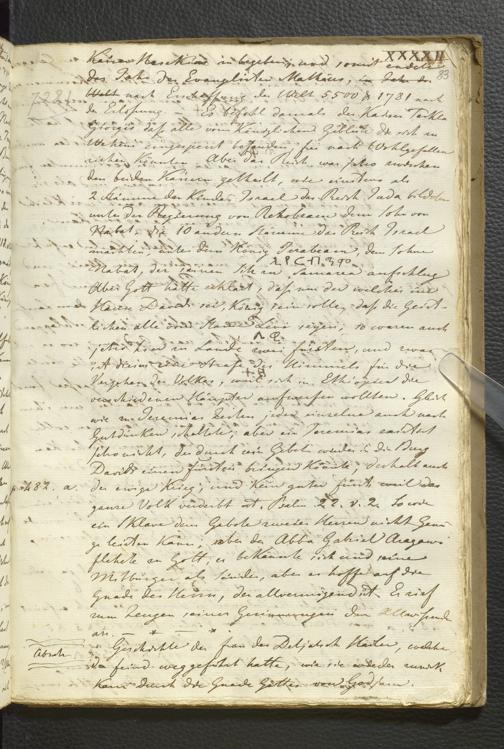 XXXXII
83
Kaiser Haseklas inbegeben; und somit endete
das Jahr des Evangelisten Mathäus, im Jahr der
Welt nach Erschaffung der Welt 5500 & 1781 nach
der Erlösung. Es befahl damals der Kaiser Tekla
Giorgis daß alle vom Königlichen Geblüt die sich in
Wehni eingesperrt befanden, frei nach Wohlgefallen
ziehen könnten. Aber das Reich war jetzo zwischen
den beiden Kaisern getheilt, wie einstens als
2 Stämme der Kinder Israel das Reich Juda bildeten
unter der Regierung von Rehobeam dem Sohn von
die 10 andern Stämme das Reich Israel
machten, unter dem König Jerobeam, dem Sohne
Nabat, der seinen Sitz in Samaria aufschlug
Aber Gott hatte erklärt, daß nur der welcher
Hause David sei, König sein solle, daß die Geist-
lichen alle vom Hause Levi seyen; so waren auch
jetzo im Lande zwei Fürsten, und zwar
ist dieses eine Strafe des Himmels für die
Vergehen des Volkes, weil sich in Ethiopien die
verschiedenen Häupter aufwerfen wollten. Gleich
wie zu Jeremias Zeiten jeder einzelne auch nach
Gutdünken schaltete; aber ein Jeremias
nicht, der durch sein Gebet wieder in die Burg
Davids einen Fürsten bringen könnte; deshalb auch
82. a. der ewige Krieg; und kein guter Fürst weil das
ganze Volk verderbt ist. Psalm 22. v. 2. So wie
ein Sklave dem Gebote zweier Herren nicht Genü-
ge leisten kann; aber der Abba Gabriel
flehete zu Gott, er bekannte sich und seine
Mitbürger als Sünder, aber er hoffe auf die
Gnade des Herrn, der allvermögend ist. Er rief
zum Zeugen seiner Gesinnungen den Allwissenden
an.
Absatz Geschichte der Frau des Detjatsch Hailu, welche
der Feind weggeführt hatte, wie sie wieder zurück
kam durch die Gnade Gottes von Godjam.